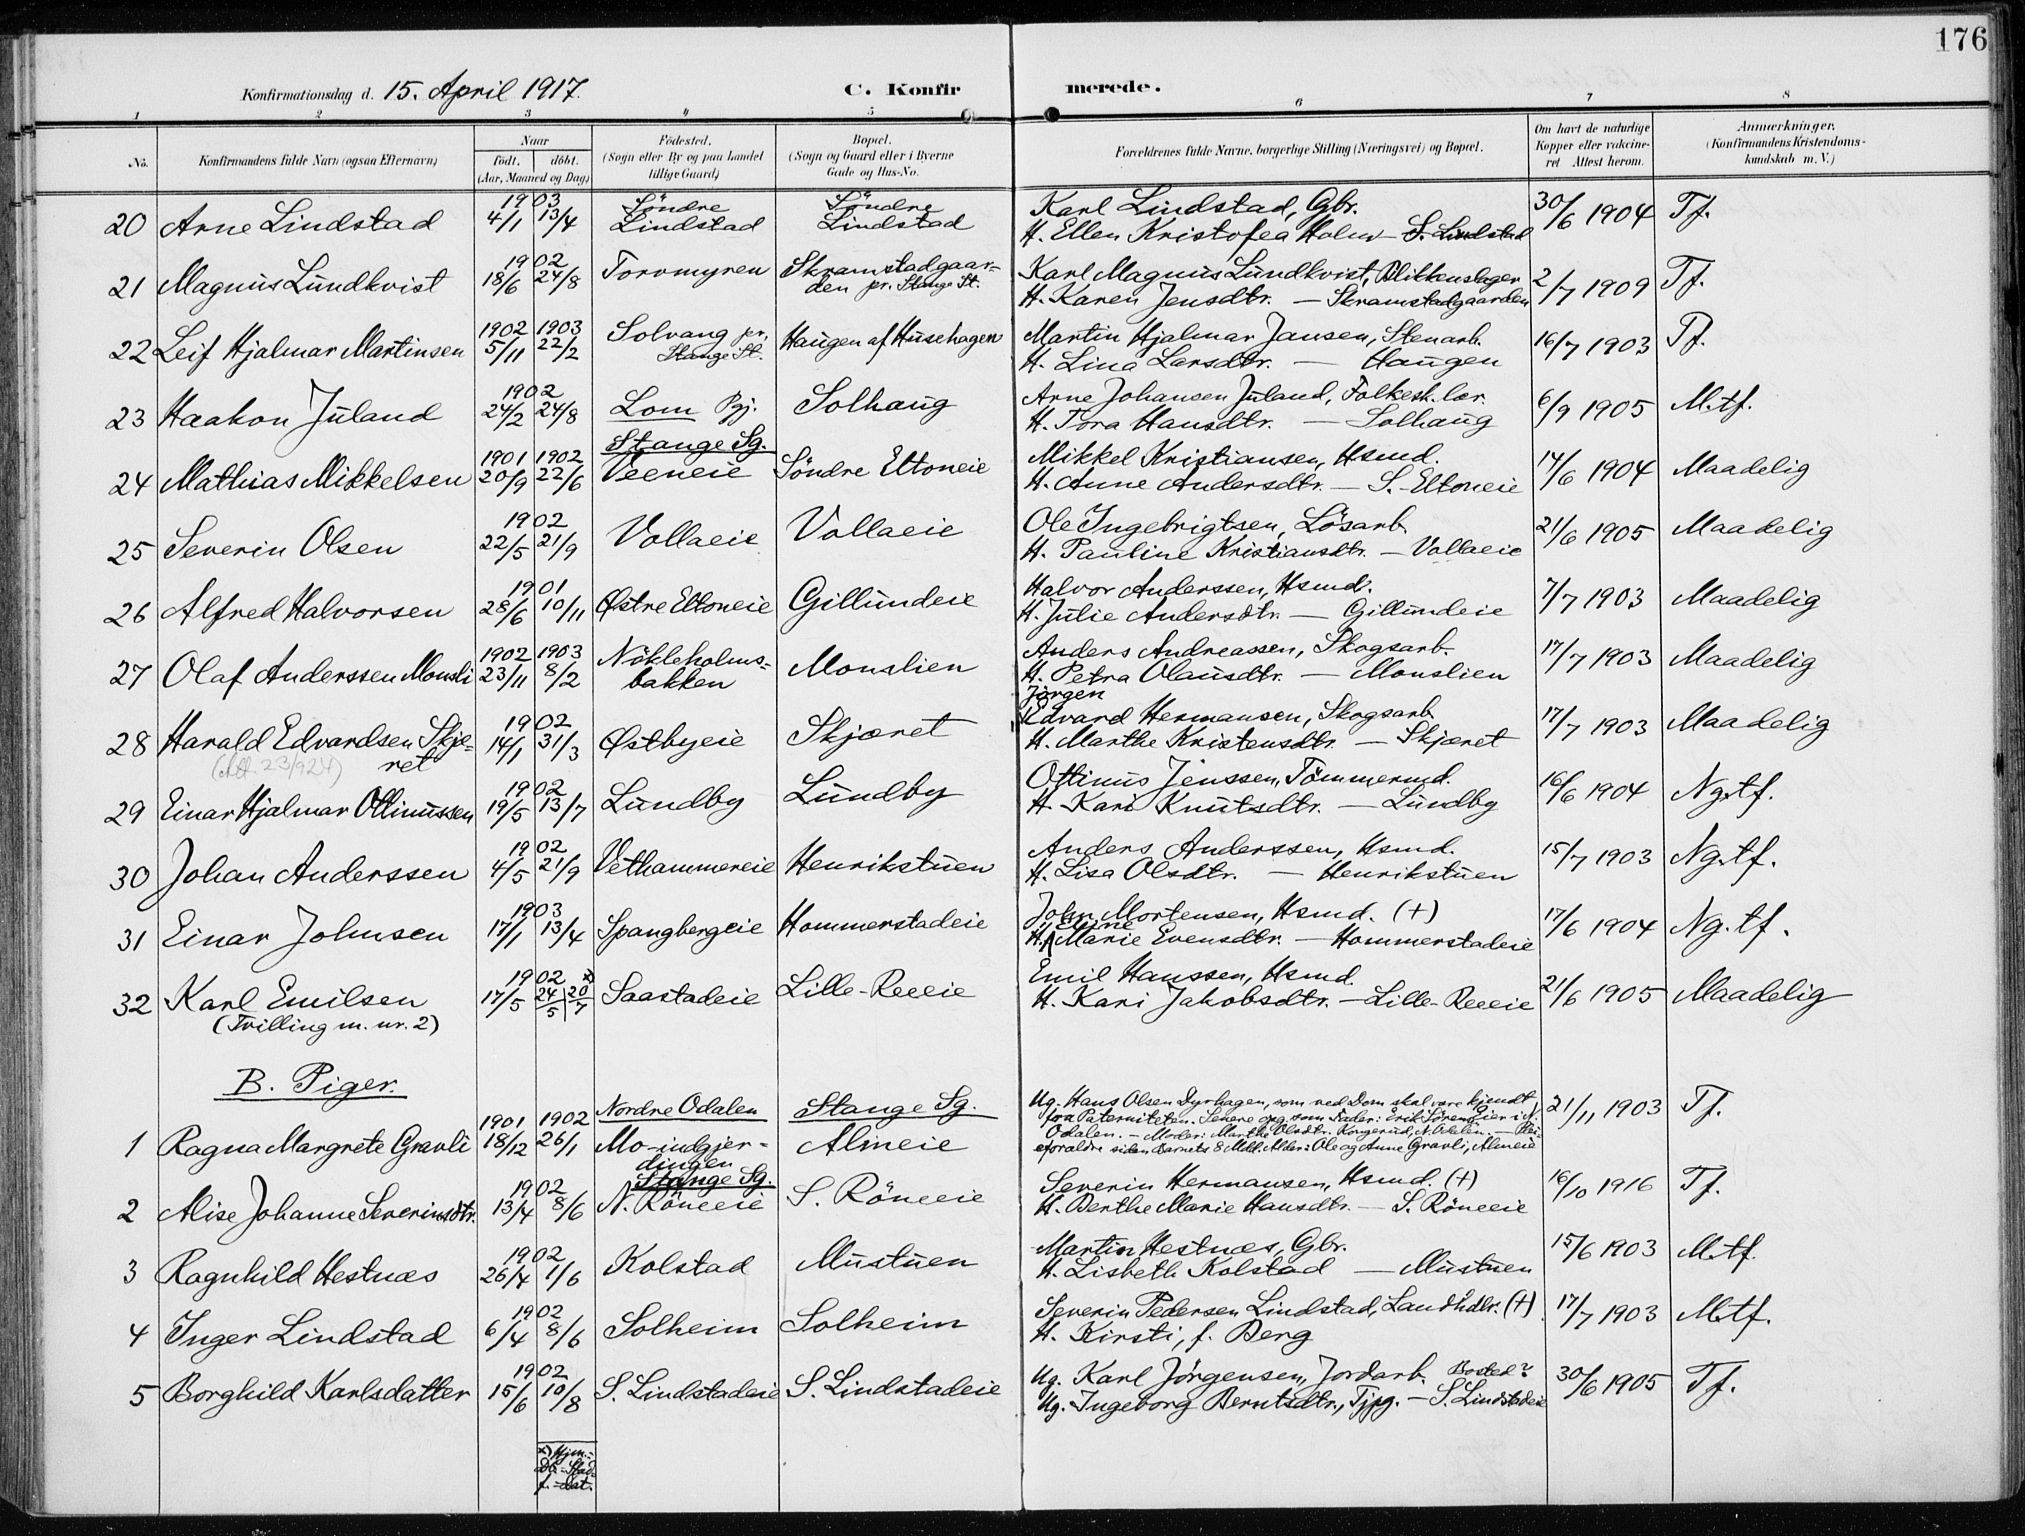 176
Konfirmationsdag d. 15. April 1917. C. Konfirmerede.
1 2 3 4 5 6 7 8
No. Konfirmandens fulde Navn (ogsaa Efternavn) Naar født. døbt. (Aar, Maaned og Dag) Fødested. (Sogn eller By og paa Landet tillige Gaard) Bopæl. (Sogn og Gaard eller i Byerne Gade og Hus-No. Forældrenes fulde Navne, borgerlige Stilling (Næringsvei) og Bopæl. Om havt de naturlige Kopper eller vakcineret Attest herom. Anmærkninger. (Konfirmandens Kristendomskundskab m. V.)
20 Arne Lindstad 1903 4/1 13/4 Söndre Lindstad Söndre Lindstad Karl Lindstad, Gbr. H. Ellen Kristofea Holm - S. Lindstad 30/6 1904 Tf.
21 Magnus Lundkvist 1902 18/6 24/8 Torvmyren Skramstadgaarden pr. Stange St. Karl Magnus Lundkvist, Blikkenslager H. Karen Jensdtr. - Skramstadgaarden 2/7 1909 Tf.
22 Leif Hjalmar Martinsen 1902 5/11 1903 22/2 Solvang pr. Stange St. Haugen af Husehagen Martin Hjalmar Jansen, Stenarb. H. Lina Larsdtr. - Haugen 16/7 1903 Tf.
23 Haakon Juland 1902 24/2 24/8 Lom Pgj. Solhaug Arne Johansen Juland, Folkesk.lær. H. Tora Hansdtr. - Solhaug 6/9 1905 M.tf.
24 Mathias Mikkelsen 1901 20/9 1902 22/6 Stange Sg. Veeneie Söndre Eltoneie Mikkel Kristiansen, Hsmd. H. Anne Andersdtr. - S. Eltoneie 14/6 1904 Maadelig
25 Severin Olsen 1902 22/5 21/9 Vollaeie Vollaeie Ole Ingebrigtsen, Lösarb. H. Pauline Kristiansdtr. - Vollaeie 21/6 1905 Maadelig
26 Alfred Halvorsen 1901 28/6 10/11 Østre Eltoneie Gillundeie Halvor Anderssen, Hsmd. H. Julie Andersdtr. - Gillundeie 7/7 1903 Maadelig
27 Olaf Anderssen Monsli 1902 23/11 1903 8/2 Nökleholmsbakken Monslien Anders Andreassen, Skogsarb. H. Petra Olausdtr. - Monslien 17/7 1903 Maadelig
28 Harald Edvardsen Skjæret 1902 14/1 31/3 Østbyeie Skjæret Jörgen Edvard Hermansen, Skogsarb. H. Marthe Kristensdtr. - Skjæret 17/7 1903 Maadelig
29 Einar Hjalmar Ottinussen 1902 19/5 13/7 Lundby Lundby Ottinus Jenssen, Tömmermd. H. Kari Knutsdtr. - Lundby 16/6 1904 Ng.tf.
30 Johan Anderssen 1902 4/5 21/9 Vethammereie Henrikstuen Anders Anderssen, Hsmd. H. Lisa Olsdtr. - Henrikstuen 15/7 1903 Ng.tf.
31 Einar Johnsen 1903 17/1 13/4 Spangbergeie Hommerstadeie John Mortensen, Hsmd. (+) H. Eline Marie Evensdtr. - Hommerstadeie 17/6 1904 Ng.tf.
32 Karl Emilsen (Tvilling m. nr. 2) 1902 17/5 24/5 x) 20/7 Saastadeie Lille-Reeeie Emil Hanssen, Hsmd. H. Kari Jakobsdtr. - Lille-Reeeie 21/6 1905 Maadelig
B. Piger.
1 Ragna Margrete Gravli 1901 18/12 1902 26/1 Nordre Odalen Mo-indgjerdingen Stange Sg. Almeie Ug. Hans Olsen Dyrhagen, som ved Dom skal være kjendt fra Paterniteten. Senere opg. som Fader: Erik Sörengeier i N. Odalen. - Moder: Marthe Olsdtr. Kongerud, N. Odalen. - Pleieforældre siden Barnets 8 Mdl. Alder: Ole og Anne Gravli, Almeie 21/11 1903 Tf.
2 Alise Johanne Severinsdtr. 1902 13/4 8/6 Stange Sg. N. Röneeie S. Röneeie Severin Hermansen, Hsmd. (+) H. Berthe Marie Hansdtr. - S. Röneeie 16/10 1916 Tf.
3 Ragnhild Hestnæs 1902 26/4 1/6 Kolstad Mustuen Martin Hestnæs, Gbr. H. Lisbeth Kolstad - Mustuen 15/6 1903 M.tf.
4 Inger Lindstad 1902 6/4 8/6 Solheim Solheim Severin Pedersen Lindstad, Landhdlr. (+) H. Kirsti, f. Berg 17/7 1903 M.tf.
5 Borghild Karlsdatter 1902 15/6 10/8 S. Lindstadeie S. Lindstadeie Ug. Karl Jørgensen, Jordarb. Bosted? Ug. Ingeborg Berntsdtr., Tjpg. - S. Lindstadeie 30/6 1905 Tf.
x) Hjem.-
Db.-Stad-
f.-dat.